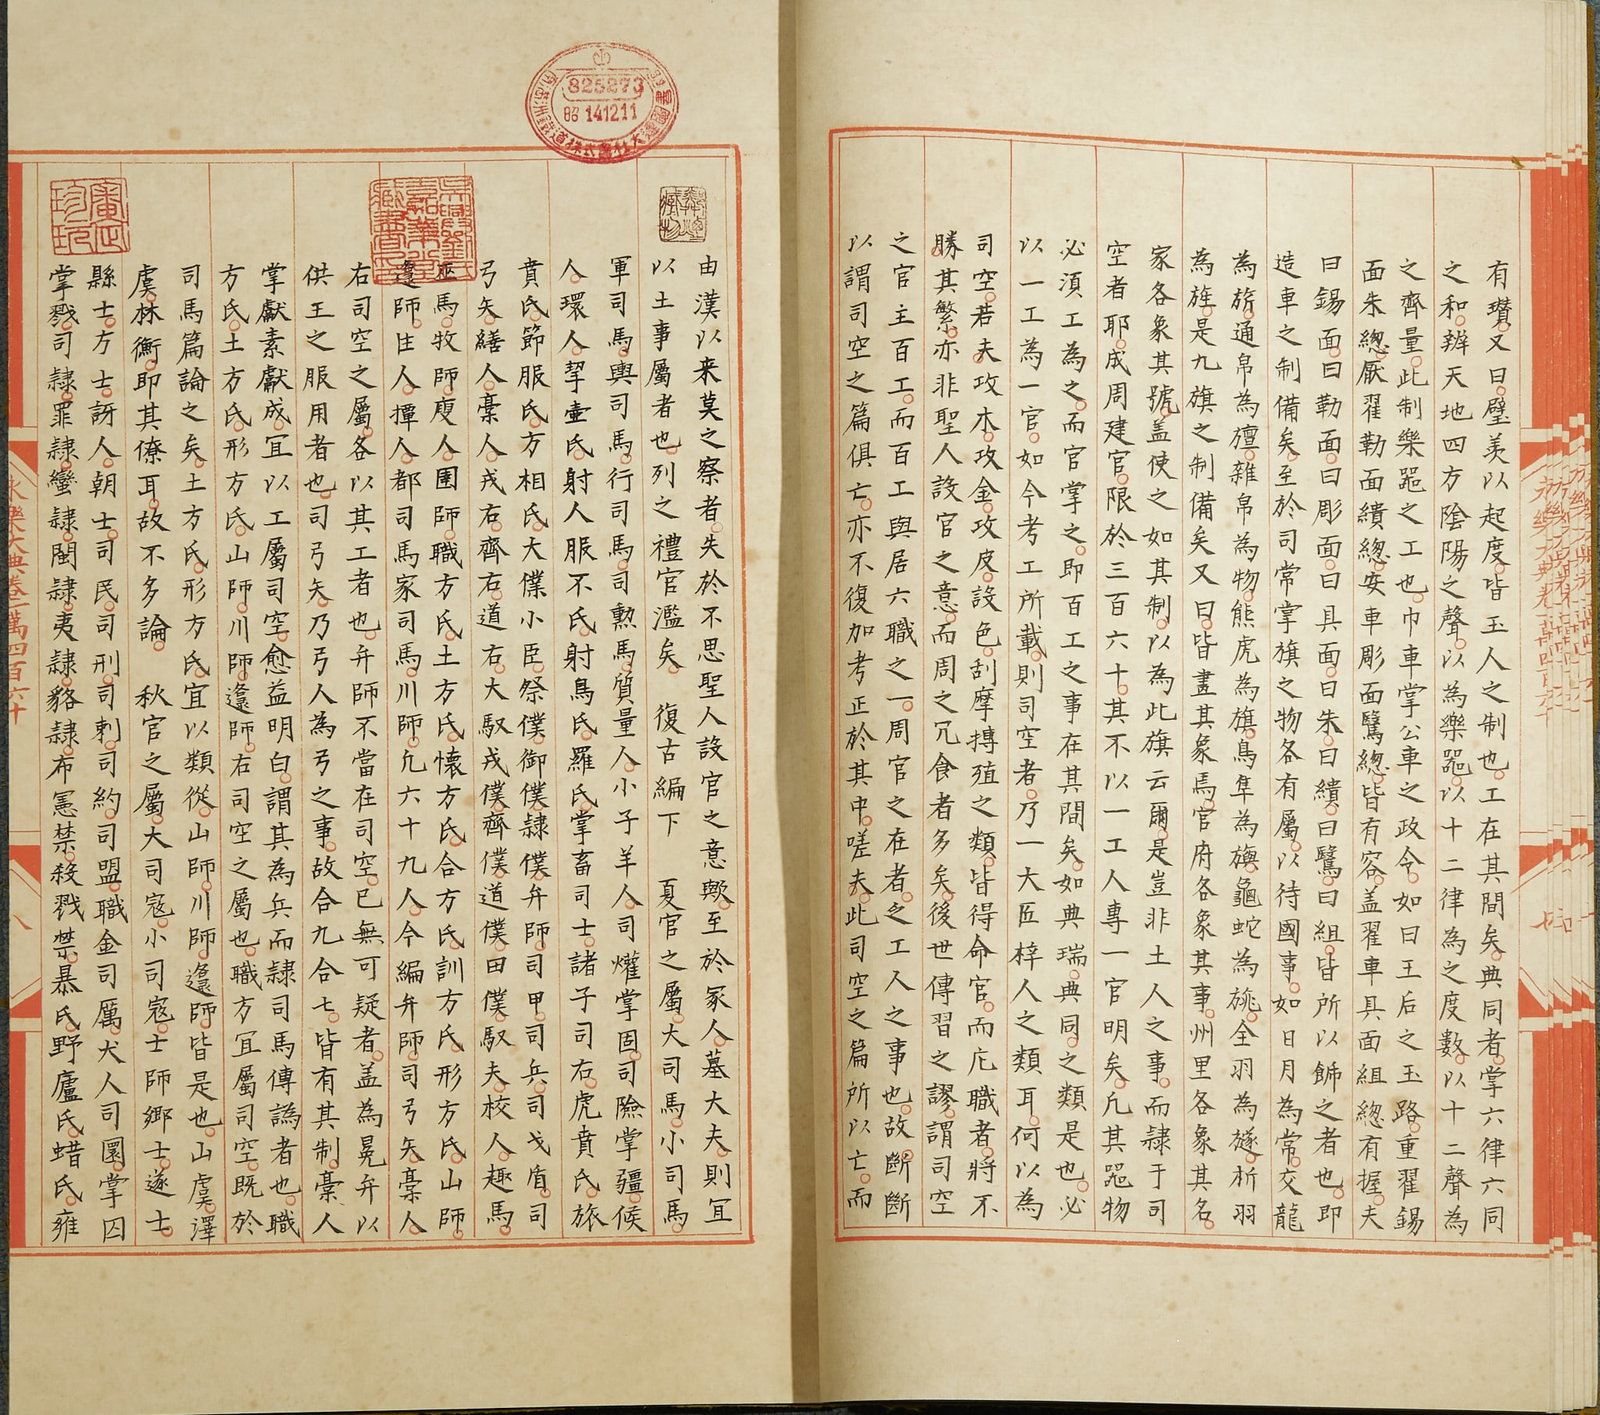 有瓚又曰璧羡以起度皆玉人之制也工在其間矣典同者掌六律六同
之和辨天地四方陰陽之聲以為樂器以十二律為之度數以十二聲為
之齊量此制樂器之工也巾車掌公車之政令如曰王后之玉路重翟錫
面朱總厭翟勒面繢總安車彫面鷖總皆有容盖翟車具面組總有握夫
曰錫面曰勒面曰彫面曰具面曰朱曰繢曰鷖曰組皆所以飾之者也即
造車之制備矣至於司常掌旗之物各有屬以待國事如日月為常交龍
為旂通帛為襢雜帛為物熊虎為旗鳥隼為旟龜蛇為旐全羽為旞析羽
為旌是九旗之制備矣又曰皆畫其象焉官府各象其事州里各象其名
家各象其號盖使之如其制以為此旗云爾是豈非土人之事而隸于司
空者耶成周建官限於三百六十其不以一工人專一官明矣凡其器物
必湏工為之而官掌之即百工之事在其間矣如典瑞典同之類是也必
以一工為一官如今考工所載則司空者乃一大匠梓人之類耳何以為
司空若夫攻木攻金攻皮設色刮摩摶殖之類皆得命官而庀職者將不
勝其繁亦非聖人設官之意而周之冗食者多矣後世傳習之謬謂司空
之官主百工而百工與居六職之一周官之在者之工人之事也故斷斷
以謂司空之篇俱亡亦不復加考正於其中嗟夫此司空之篇所以亡而
由漢以来莫之察者失於不思聖人設官之意歟至於冢人墓大夫則宜
以土事屬者也列之禮官濫矣 復古編下 夏官之屬大司馬小司馬
軍司馬輿司馬行司馬司勲馬質量人小子羊人司爟掌固司險掌疆候
人環人挈壷氏射人服不氏射鳥氏羅氏掌畜司士諸子司右虎賁氏旅
賁氏節服氏方相氏大僕小臣祭僕御僕隸僕弁師司甲司兵司戈盾司
弓矢繕人槀人戎右齊右道右大馭戎僕齊僕道僕田僕馭夫校人趣馬
巫馬牧師廋人圉師職方氏土方氏懷方氏合方氏訓方氏形方氏山師
邍師匡人撢人都司馬家司馬川師凢六十九人今編弁師司弓矢槀人
右司空之屬各以其工者也弁師不當在司空已無可疑者盖為冕弁以
供王之服用者也司弓矢乃弓人為弓之事故合九合七皆有其制槀人
掌獻素獻成冝以工屬司空愈益明白謂其為兵而隸司馬傳譌者也職
方氏土方氏形方氏山師川師邍師右司空之屬也職方冝屬司空既於
司馬篇論之矣土方氏形方氏宜以類從山師川師邍師皆是也山虞澤
虞林衡即其僚耳故不多論 秋官之屬大司寇小司寇士師鄉士遂士
縣士方士訝人朝士司民司刑司刺司約司盟職金司厲犬人司圜掌囚
掌戮司隷罪隷蠻隷閩隷夷隷貉隷布憲禁殺戮禁暴氏野廬氏蜡氏雍
永樂大典卷一萬四百六十
八
825273
昭 141211
南満洲鐵道株式會社大連圖書館